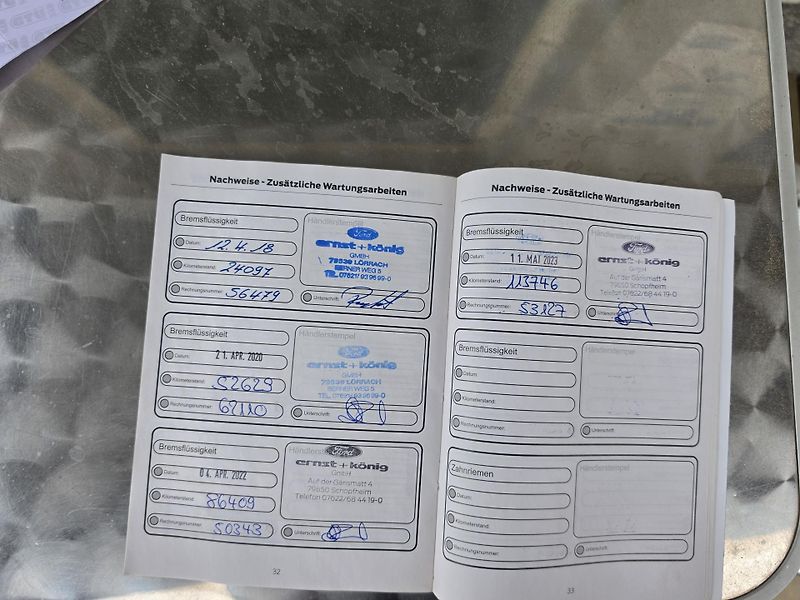 Nachweise - Zusätzliche Wartungsarbeiten
Bremsflüssigkeit
Datum: 12.4.18
Kilometerstand: 24097
Rechnungsnummer: 56479
Händlerstempel
Ford
ernst + könig
GMBH
79539 LÖRRACH
BERNER WEG 5
TEL. 07621/939699-0
Unterschrift:
Bremsflüssigkeit
Datum: 21. APR. 2020
Kilometerstand: 52629
Rechnungsnummer: 62110
Händlerstempel
Ford
ernst + könig
GMBH
79539 LÖRRACH
BERNER WEG 5
TEL. 07621/939699-0
Unterschrift:
Bremsflüssigkeit
Datum: 04. APR. 2022
Kilometerstand: 86409
Rechnungsnummer: 50343
Händlerstempel
Ford
ernst + könig
GmbH
Auf der Gänsmatt 4
79650 Schopfheim
Telefon 07622/68 44 19-0
Unterschrift:
32
Nachweise - Zusätzliche Wartungsarbeiten
Bremsflüssigkeit
Datum: 11. MAI 2023
Kilometerstand: 113746
Rechnungsnummer: 53127
Händlerstempel
Ford
ernst + könig
GmbH
Auf der Gänsmatt 4
79650 Schopfheim
Telefon 07622/68 44 19-0
Unterschrift:
Bremsflüssigkeit
Datum:
Kilometerstand:
Rechnungsnummer:
Händlerstempel
Unterschrift:
Zahnriemen
Datum:
Kilometerstand:
Rechnungsnummer:
Händlerstempel
Unterschrift:
33